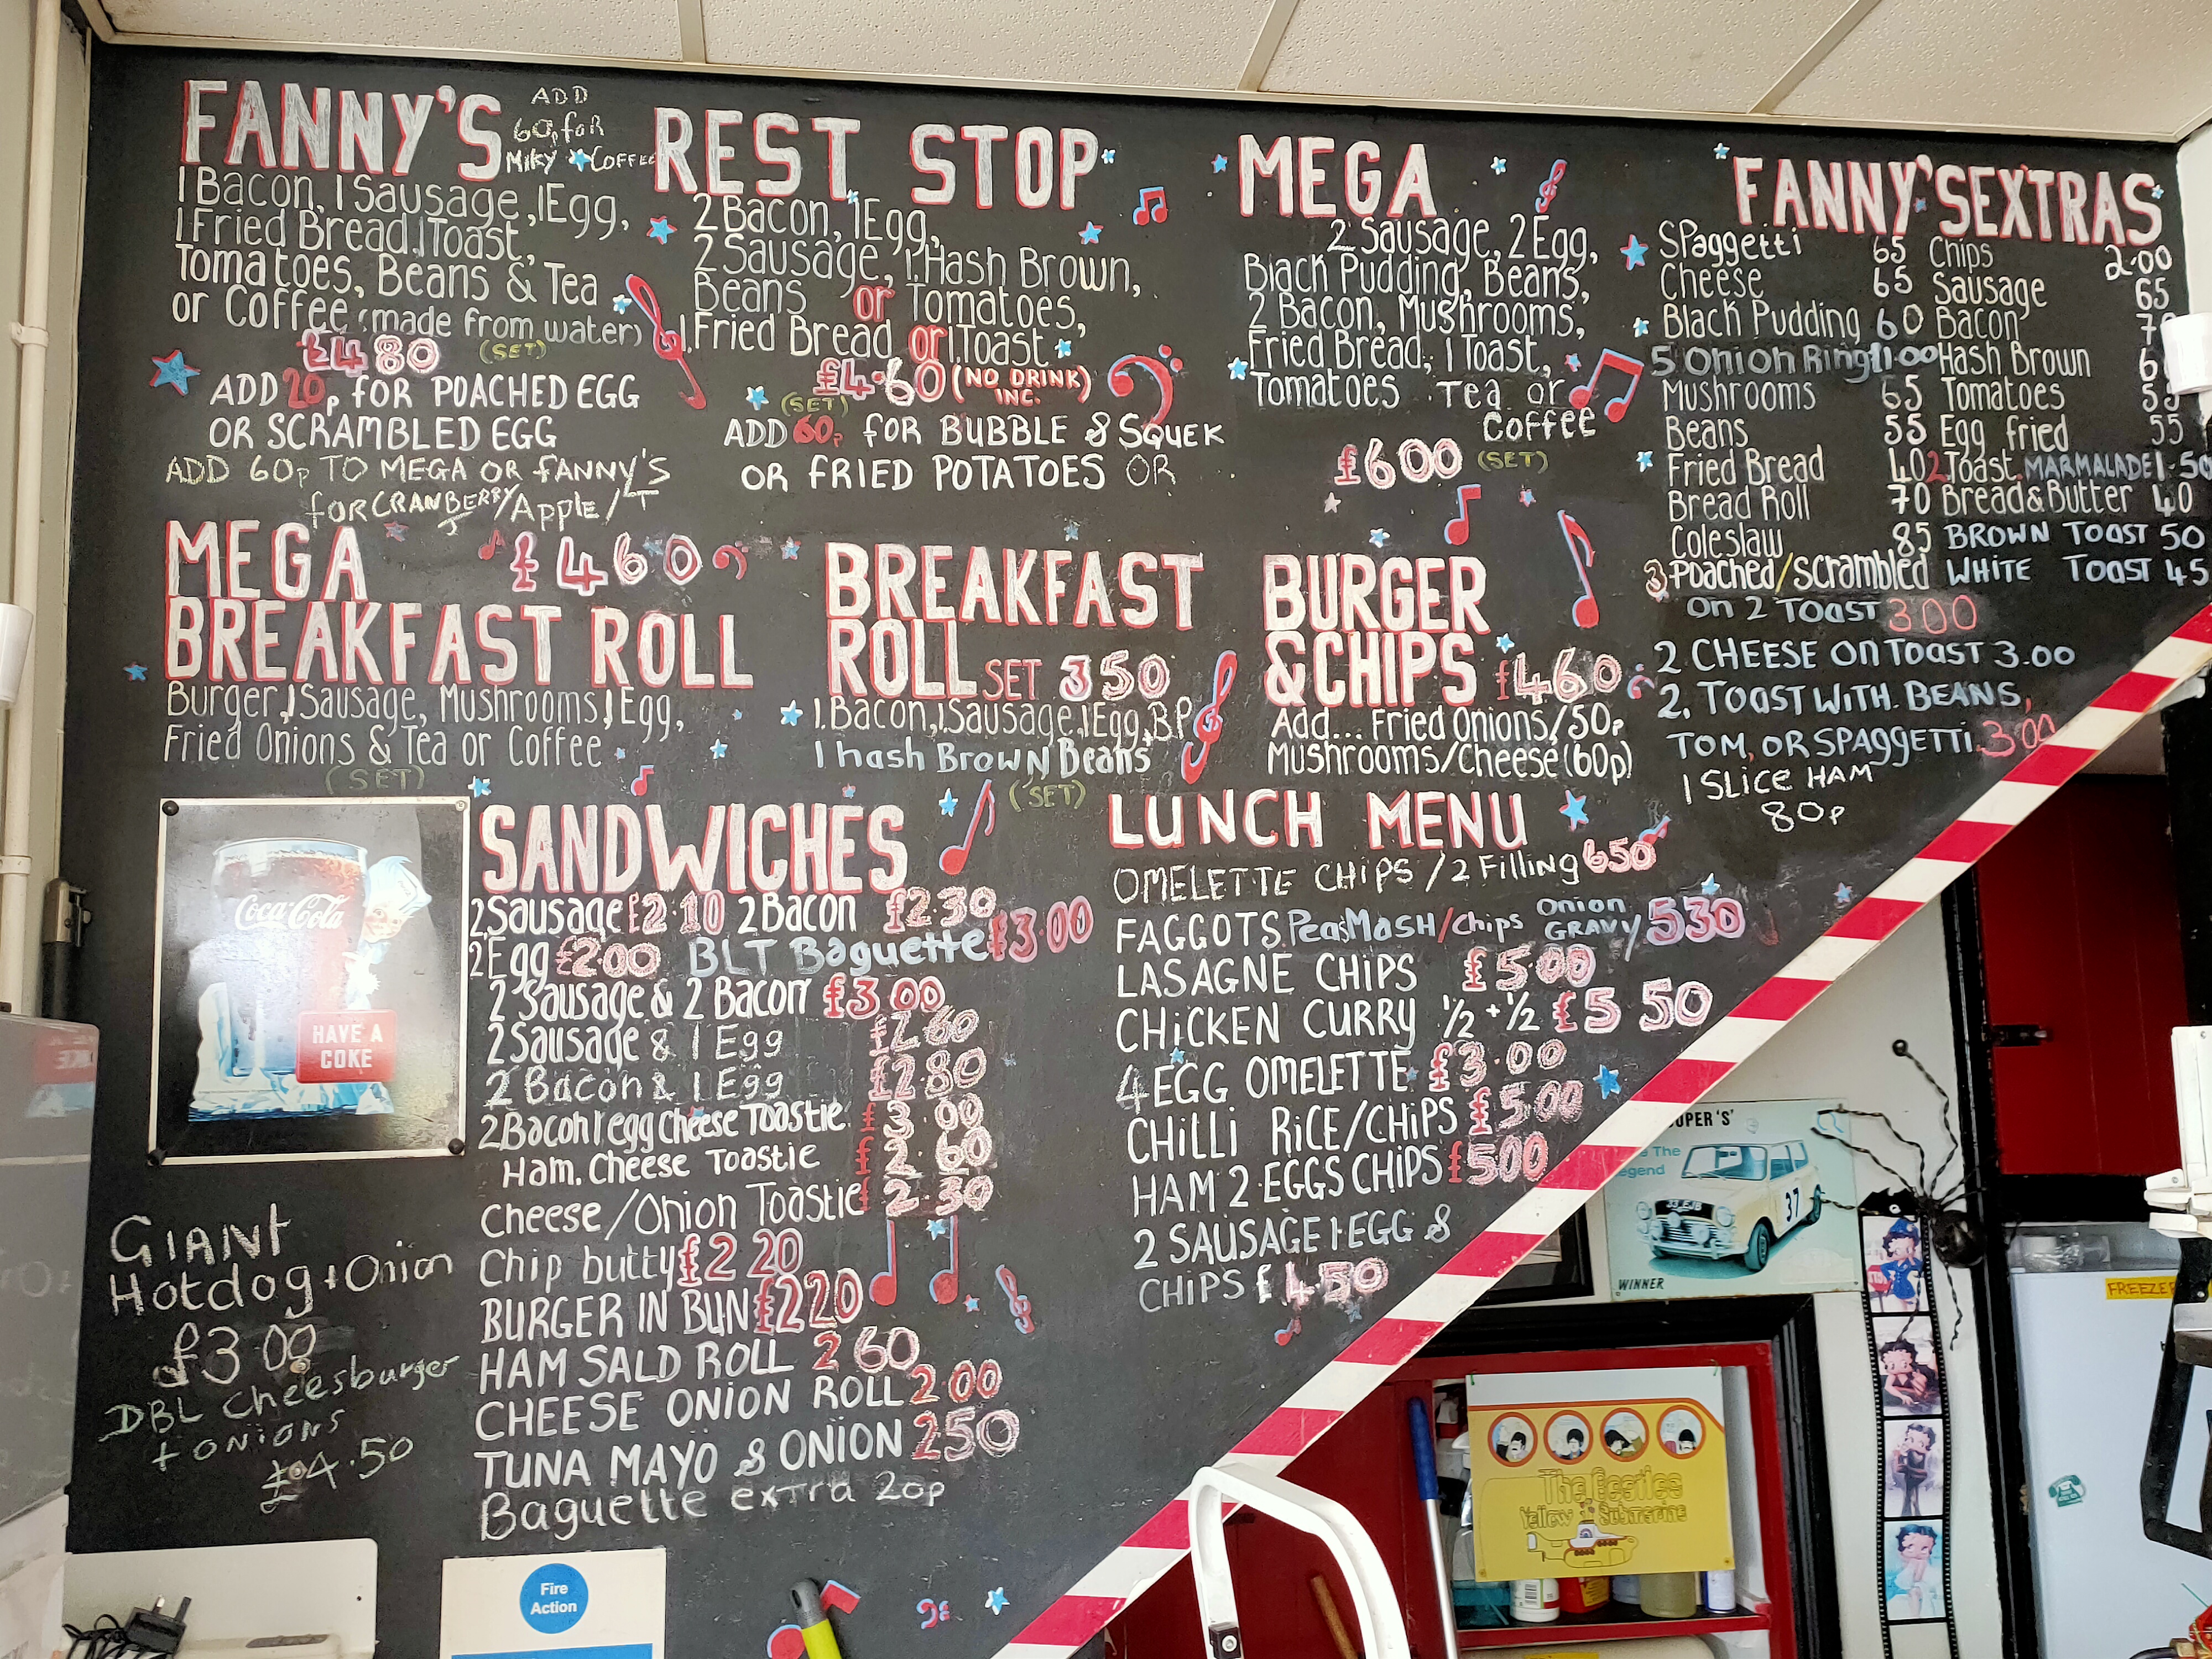 FANNY'S
ADD
60p for
MiKy COFFEE
1 Bacon, 1 Sausage, 1 Egg,
1 Fried Bread, 1 Toast,
Tomatoes, Beans & Tea
or Coffee (made from water)
£4 80 (SET)
ADD 20p fOR POACHED EGG
OR SCRAMBLED EGG
ADD 60p TO MEGA OR fANNY'S
for CRANBERRY/Apple/
REST STOP
2 Bacon, 1 Egg,
2 Sausage, 1 Hash Brown,
Beans or Tomatoes,
1 Fried Bread or 1 Toast.
£4.60 (NO DRINK)
INC.
(SET)
ADD 60p fOR BUBBLE & SQUEK
OR fRIED POTATOES OR
MEGA
2 Sausage, 2 Egg,
Black Pudding, Beans,
2 Bacon, Mushrooms,
Fried Bread, 1 Toast,
Tomatoes Tea or
Coffee
£600 (SET)
FANNY'S EXTRAS
SPaggetti 65
Cheese 65
Black Pudding 60
5 Onion Ring 1.00
Mushrooms 65
Beans 55
Fried Bread 40
Bread Roll 70
Coleslaw 85
3 Poached/scrambled
on 2 TOAST 300
2 CHEESE On TOAST 3.00
2. TOAST WITH BEANS,
TOM, OR SPAggETTi. 300
1 SLICE HAM
80p
Chips 2.00
Sausage 65
Bacon
Hash Brown
Tomatoes
Egg fried 55
2 Toast MARMALADE 1.50
Bread & Butter 40
BROWN TOAST 50
WHITE TOAST 45
MEGA £460
BREAKFAST ROLL
Burger, 1 Sausage, Mushrooms, 1 Egg,
Fried Onions & Tea or Coffee
(SET)
BREAKFAST
ROLL SET 350
1 Bacon, 1 Sausage, 1 Egg, B.P
1 hash BROWN Beans
(SET)
BURGER
& CHIPS £460
Add... Fried Onions/50p
Mushrooms/Cheese (60p)
Coca-Cola
HAVE A
COKE
SANDWICHES
2 Sausage £2.10 2 Bacon £2.30
2 Egg £200 BLT Baguette £3.00
2 Sausage & 2 Bacon £3.00
2 Sausage & 1 Egg £2.60
2 Bacon & 1 Egg £2.80
2 Bacon 1 egg Cheese Toastie £3.00
Ham. Cheese Toastie £2.60
Cheese/Onion Toastie £2.30
Chip butty £2 20
BURGER IN BUN £220
HAM SALD ROLL 2 60
CHEESE ONION ROLL 2.00
TUNA MAYO & ONION 250
Baguette extra 20p
LUNCH MENU
OMELETTE CHIPS / 2 Filling 650
FAGGOTS Peas MASH/Chips Onion GRAVY/ 530
LASAGNE CHIPS £5.00
CHICKEN CURRY ½ + ½ £5 50
4 EGG OMELETTE £3.00
CHILLI RICE/CHIPS £5.00
HAM 2 EGGS CHIPS £500
2 SAUSAGE 1 EGG &
CHIPS £450
GIANT
Hotdog + Onion
£3.00
DBL Cheesburger
+ ONIONS
£4.50
Fire
Action
OPER 'S'
e The
egend
37
WINNER
The Beatles
Yellow Submarine
FREEZER